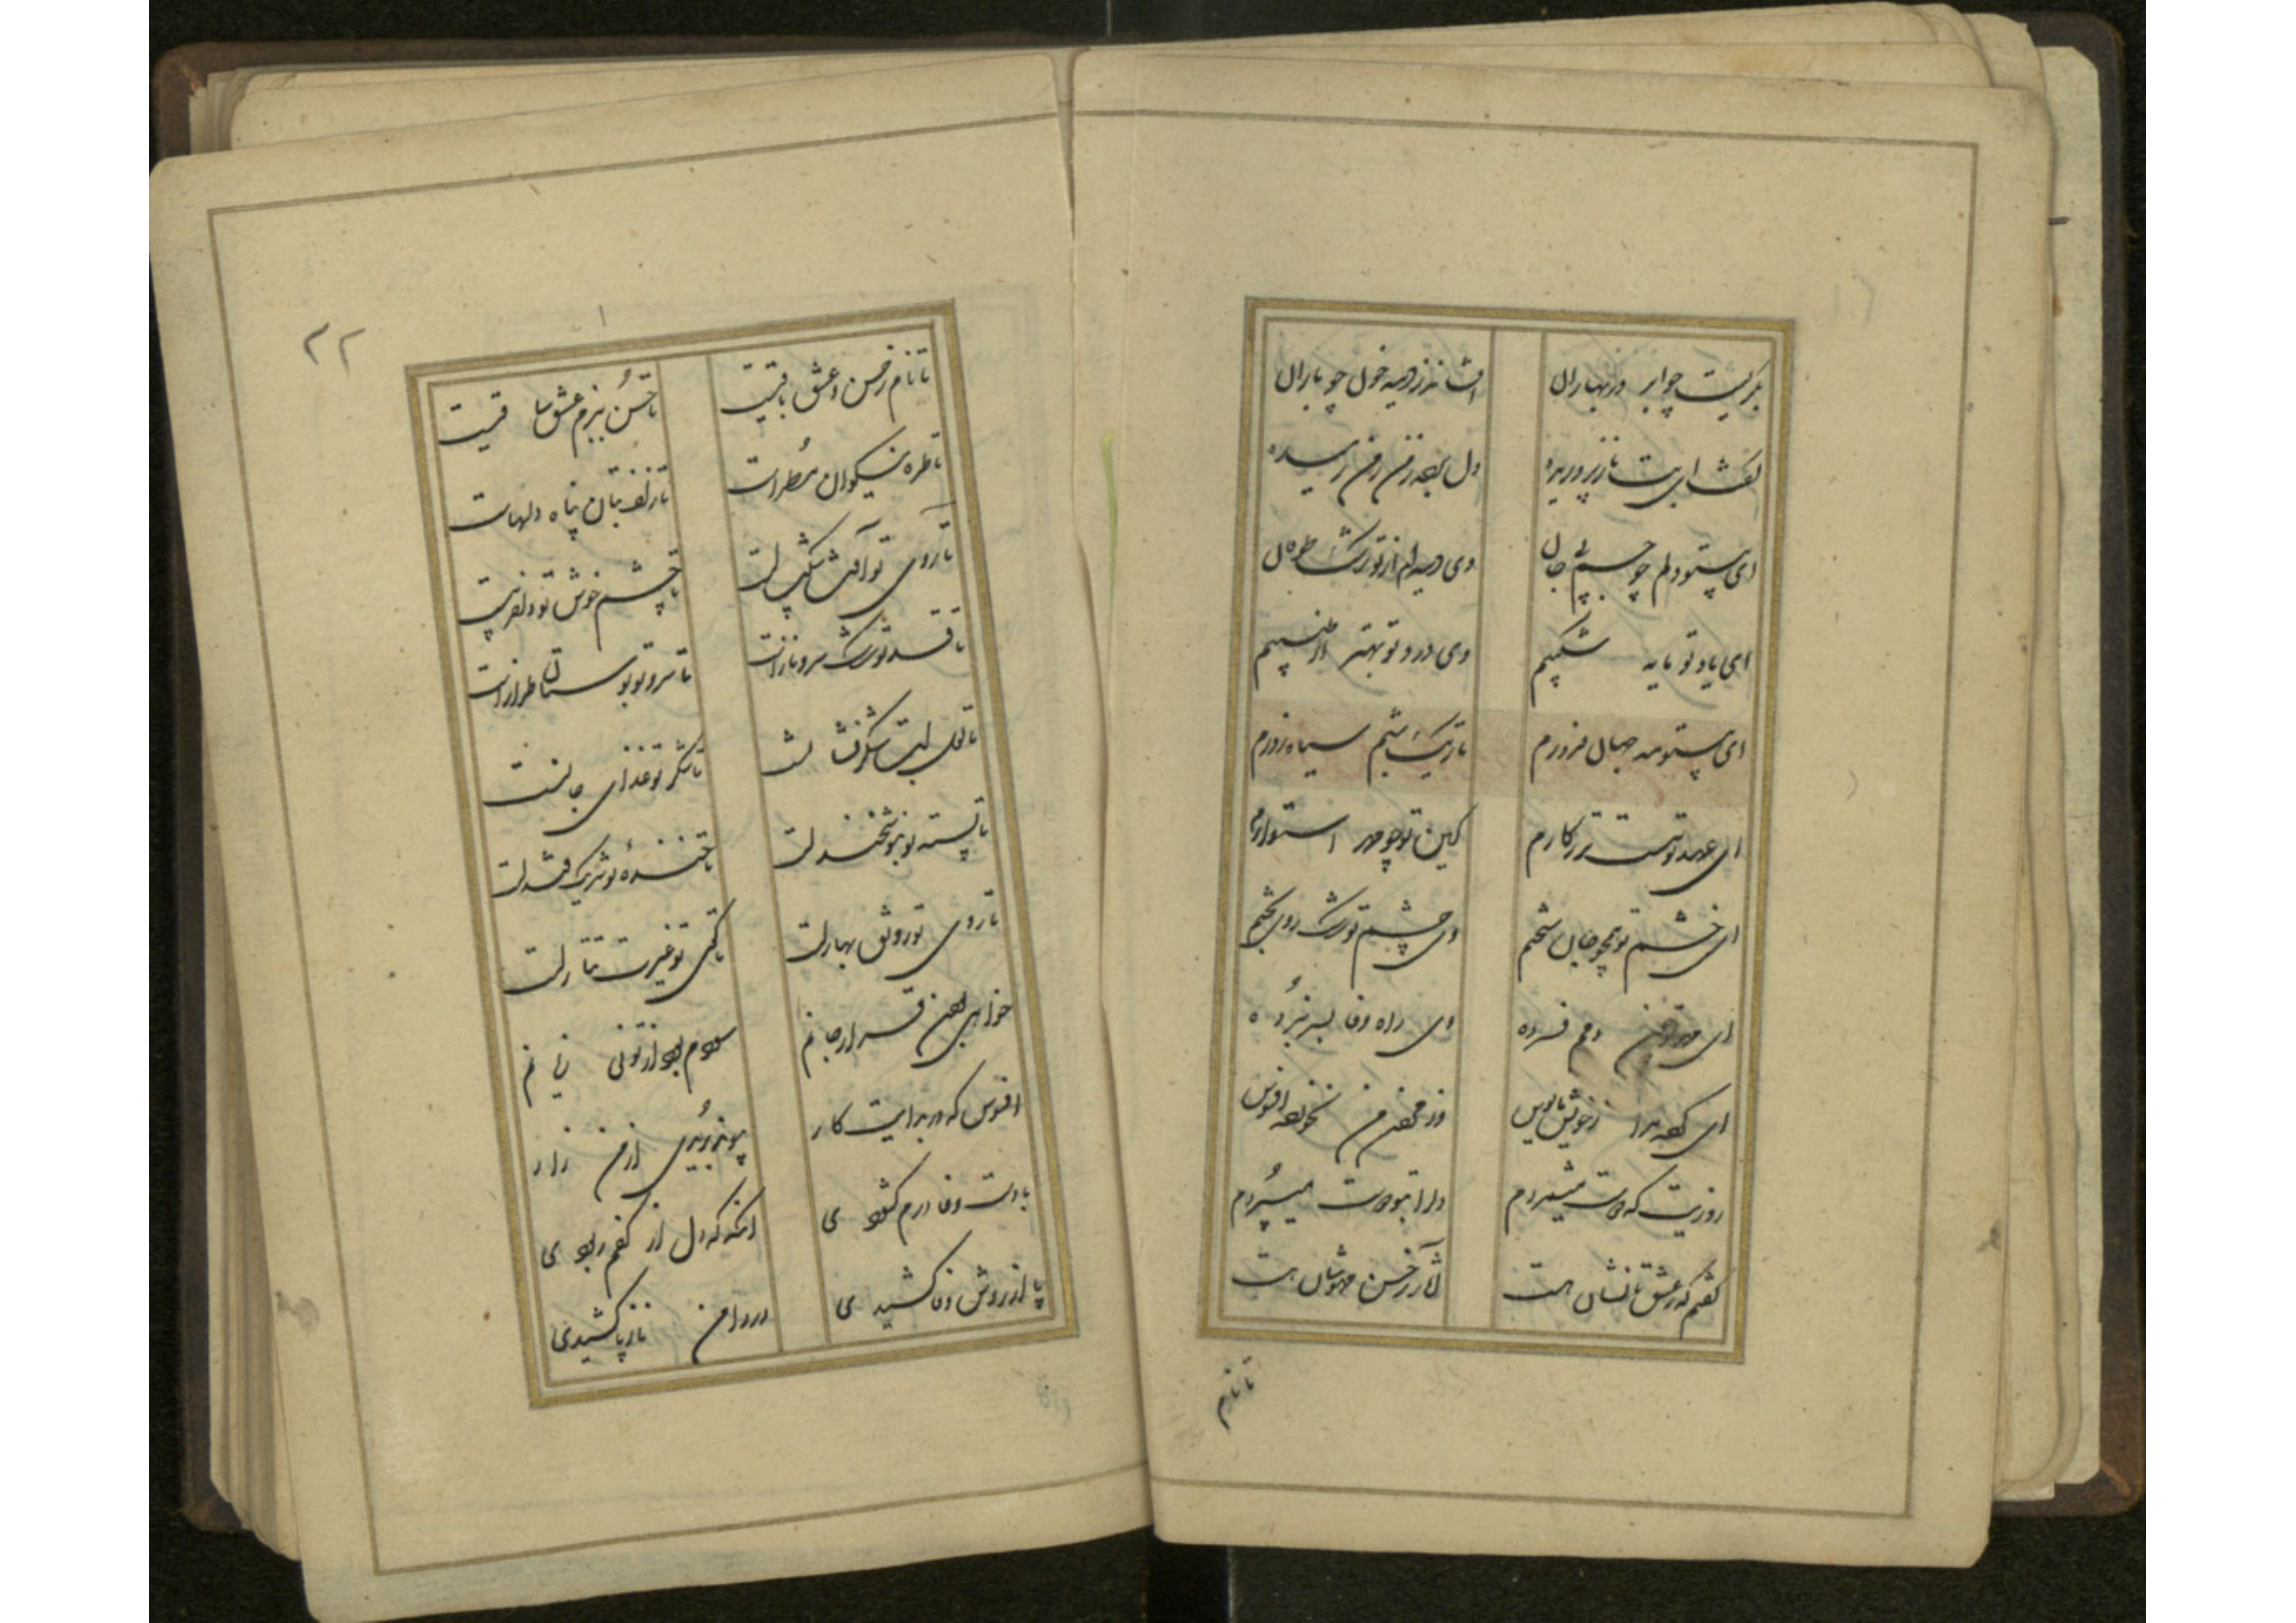 بگریست چو ابر در بهاران افشاند ز دیده خون چو باران
گفت ای بت ناز پروریده دل برده ز من ز من رمیده
ای بیتو دلم چو جسم بی جان وی دیده‌ام از تو رشک طوفان
ای یاد تو مایه شکیبم وی درد تو بهتر از طبیبم
ای بیتو مه جهان فروزم تاریک شبم سیاه روزم
ای عهد تو سست تر ز کارم کین تو چو مهر استوارم
ای خشم تو همچو جان سختم وی چشم تو رشک روی بختم
ای مهر تو از من دم فسرده وی راه وفا بسر نبرده
ای کرده مرا ز خویش مایوس وز رفتن من نخورده افسوس
روزیت که دست میسپردم دل را بتو دوست میسپردم
گفتم که ز عشق تا نشان هست آثار ز حسن مهوشان هست
تا نام
۲۲
تا نام ز حسن و عشق باقیست تا حسن ببزم عشق ساقیست
تا طره نیکوان مطراست تا زلف بتان پناه دلهاست
تا روی تو آفت شکیب است تا چشم خوش تو دلفریب است
تا قد تو رشک سرو ناز است تا سرو تو بوستان طراز است
تا لعل لبت شکرفشانست تا شکر تو غذای جانست
تا پسته تو بنوشخند است تا خنده تو شریک قند است
تا روی تو رونق بهار است تا کی تو غیرت تتار است
خواهی بودن قرار جانم سودم بود از تو نی زیانم
افسوس که در بدایت کار پیوند بریدی از من زار
با دست وفا درم گشودی آنگه که دل از کفم ربودی
پا از روش وفا کشیدی در دامن ناز پا کشیدی